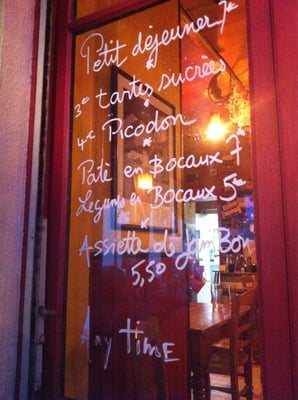 Petit déjeuner 7€
3€ tartes sucrées
4€ Picodon
Patè en Bocaux 7€
Legums en Bocaux 5€
Assiette de jamBon
5,50
Any time